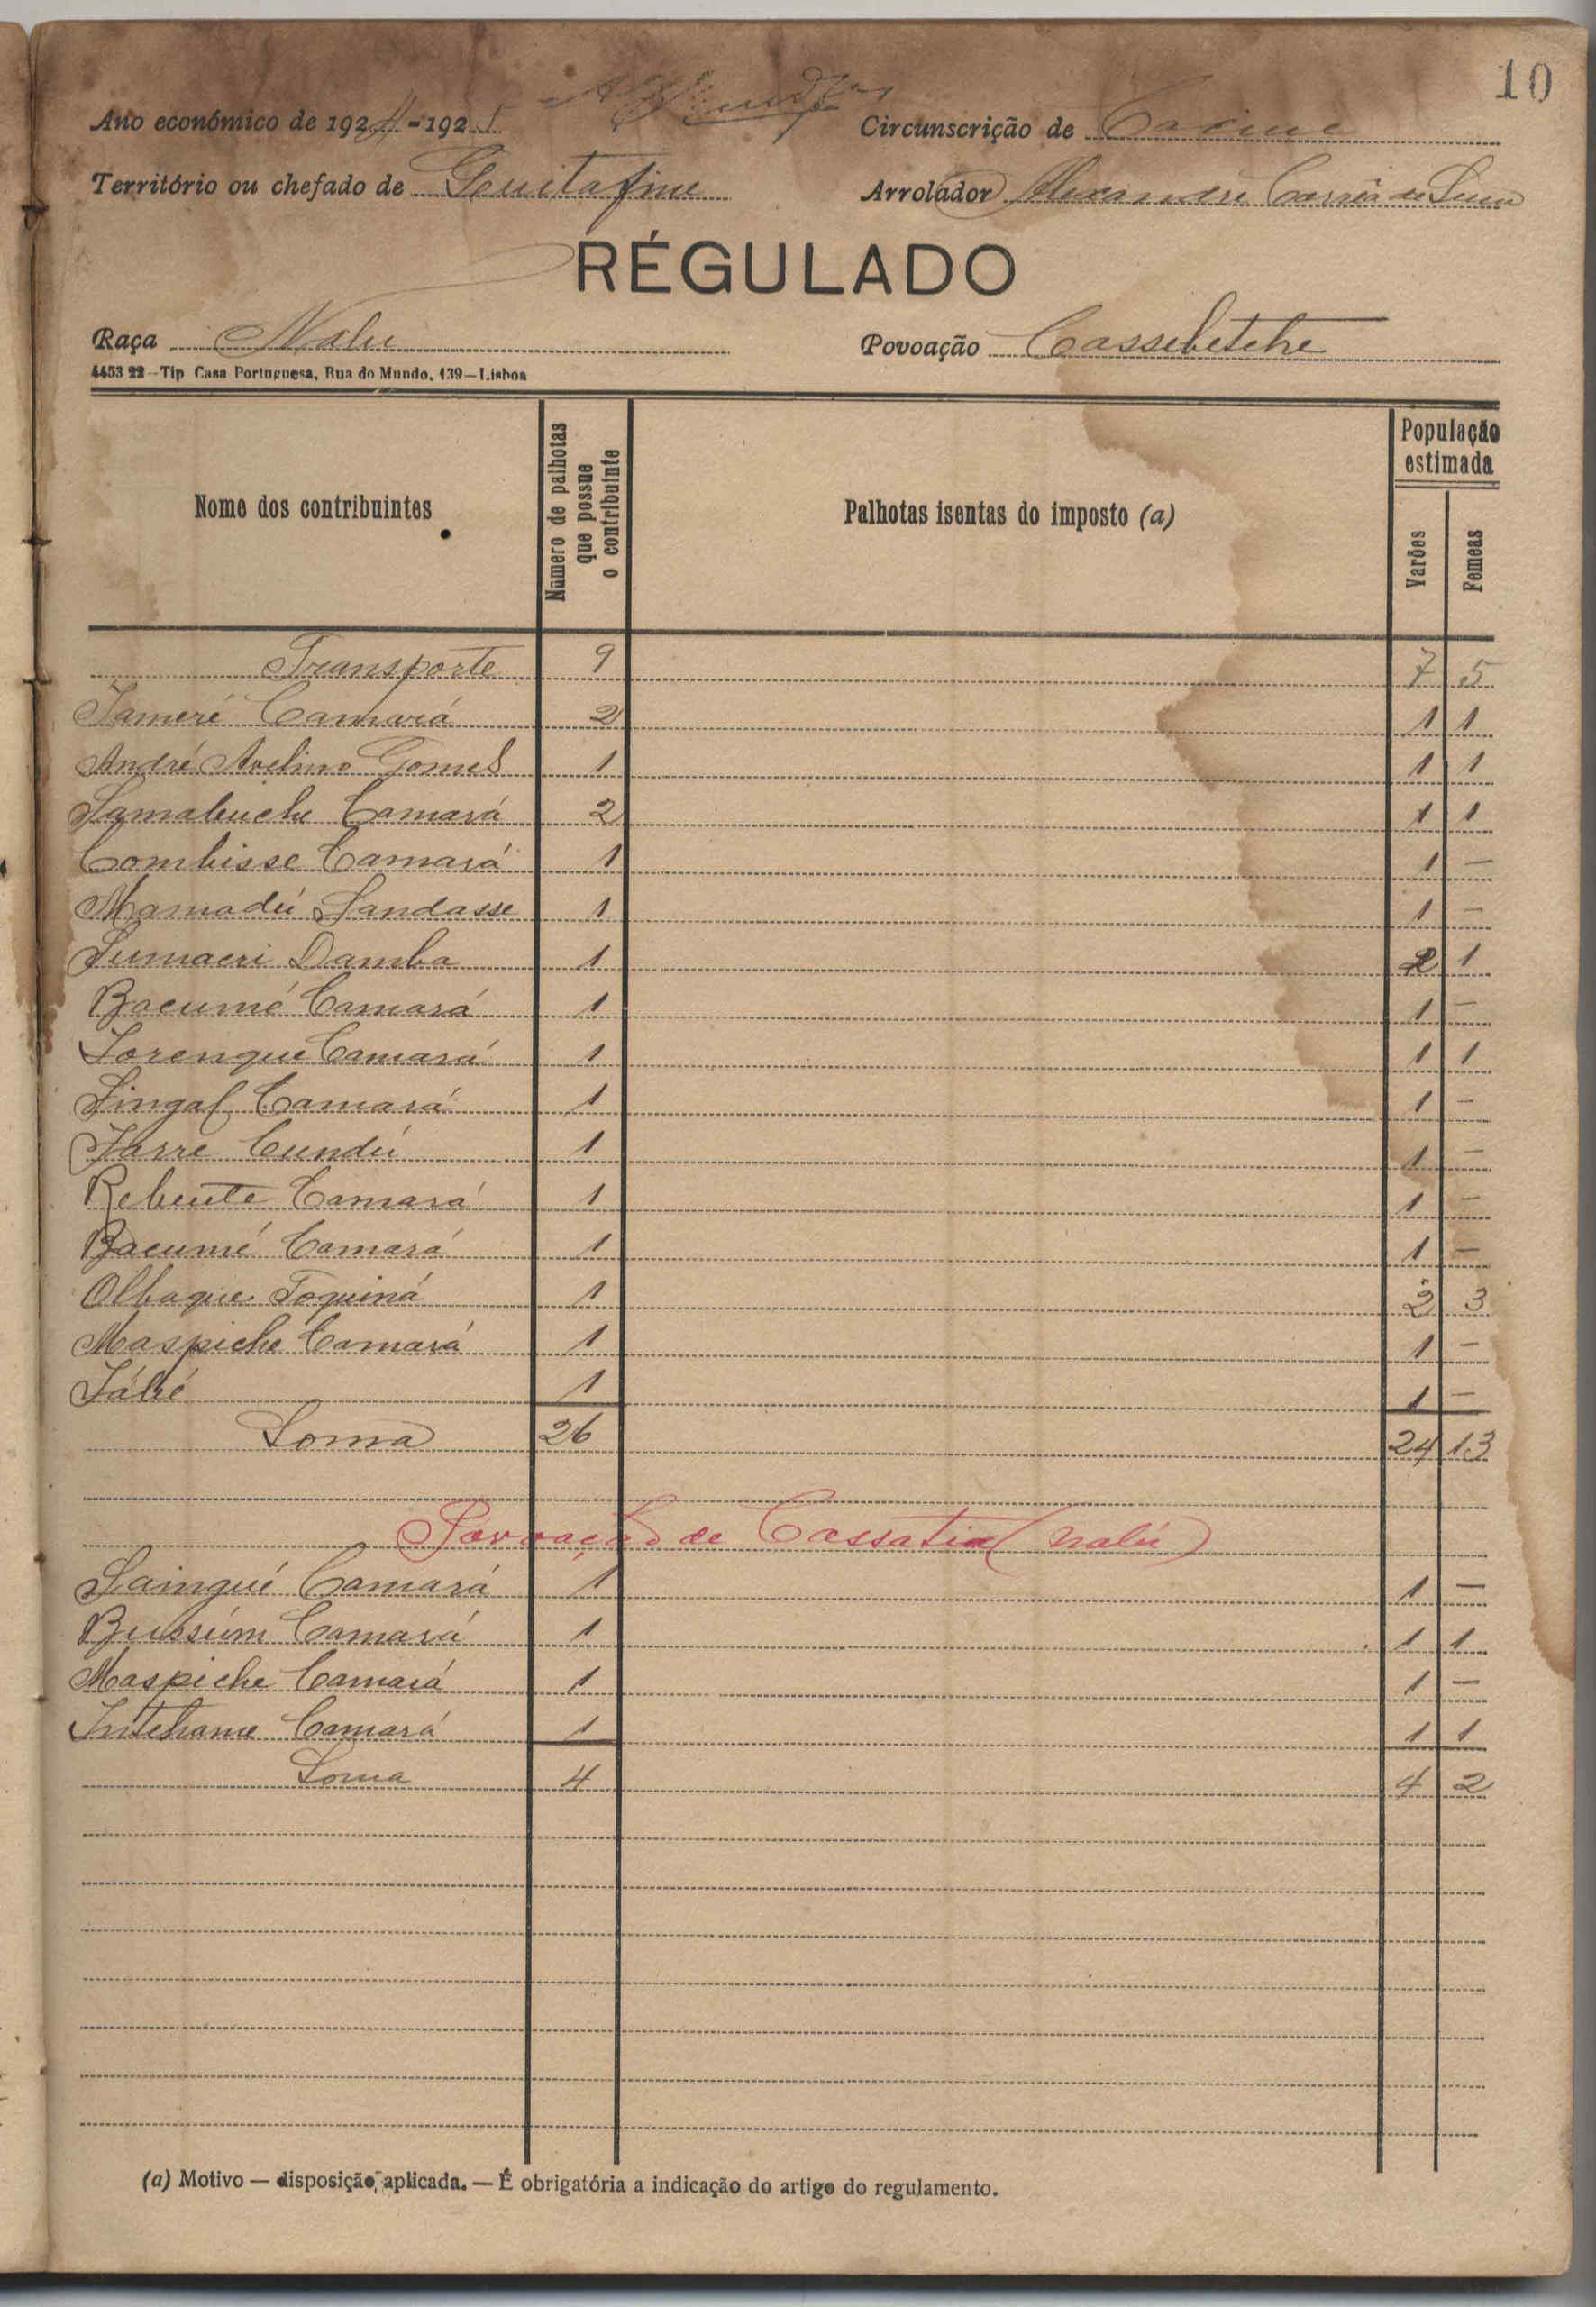 10
Ano económico de 1924-1925 Circunscrição de Cacine
Território ou chefado de Guitafine Arrolador Alexandre Corrêa de
RÉGULADO
Raça Nalu Povoação Cassebetche
4453 22 - Tip Casa Portuguesa, Rua do Mundo, 139 - Lisboa
Nome dos contribuintes Número de palhotas que possue o contribuinte Palhotas isentas do imposto (a) População estimada Varões Femeas
Transporte 9 7 5
Jameré Camará 2 1 1
André Avelino Gomes 1 1 1
Samabuche Camará 2 1 1
Combisse Camará 1 1 —
Mamadú Sandasse 1 1 —
Sumaeri Damba 1 2 1
Bacumé Camará 1 1 —
Lorenque Camará 1 1 1
Singal Camará 1 1 —
Jarre Cundú 1 1 —
Rebente Camará 1 1 —
Bacumé Camará 1 1 —
Olbaque Toquiná 1 2 3
Maspiche Camará 1 1 —
Jábé 1 1 —
Soma 26 24 13
Povoação de Cassatia (nalú)
Saingué Camará 1 1 —
Bussúm Camará 1 1 1
Maspiche Camará 1 1 —
Intchame Camará 1 1 1
Soma 4 4 2
(a) Motivo — disposição aplicada. — É obrigatória a indicação do artigo do regulamento.